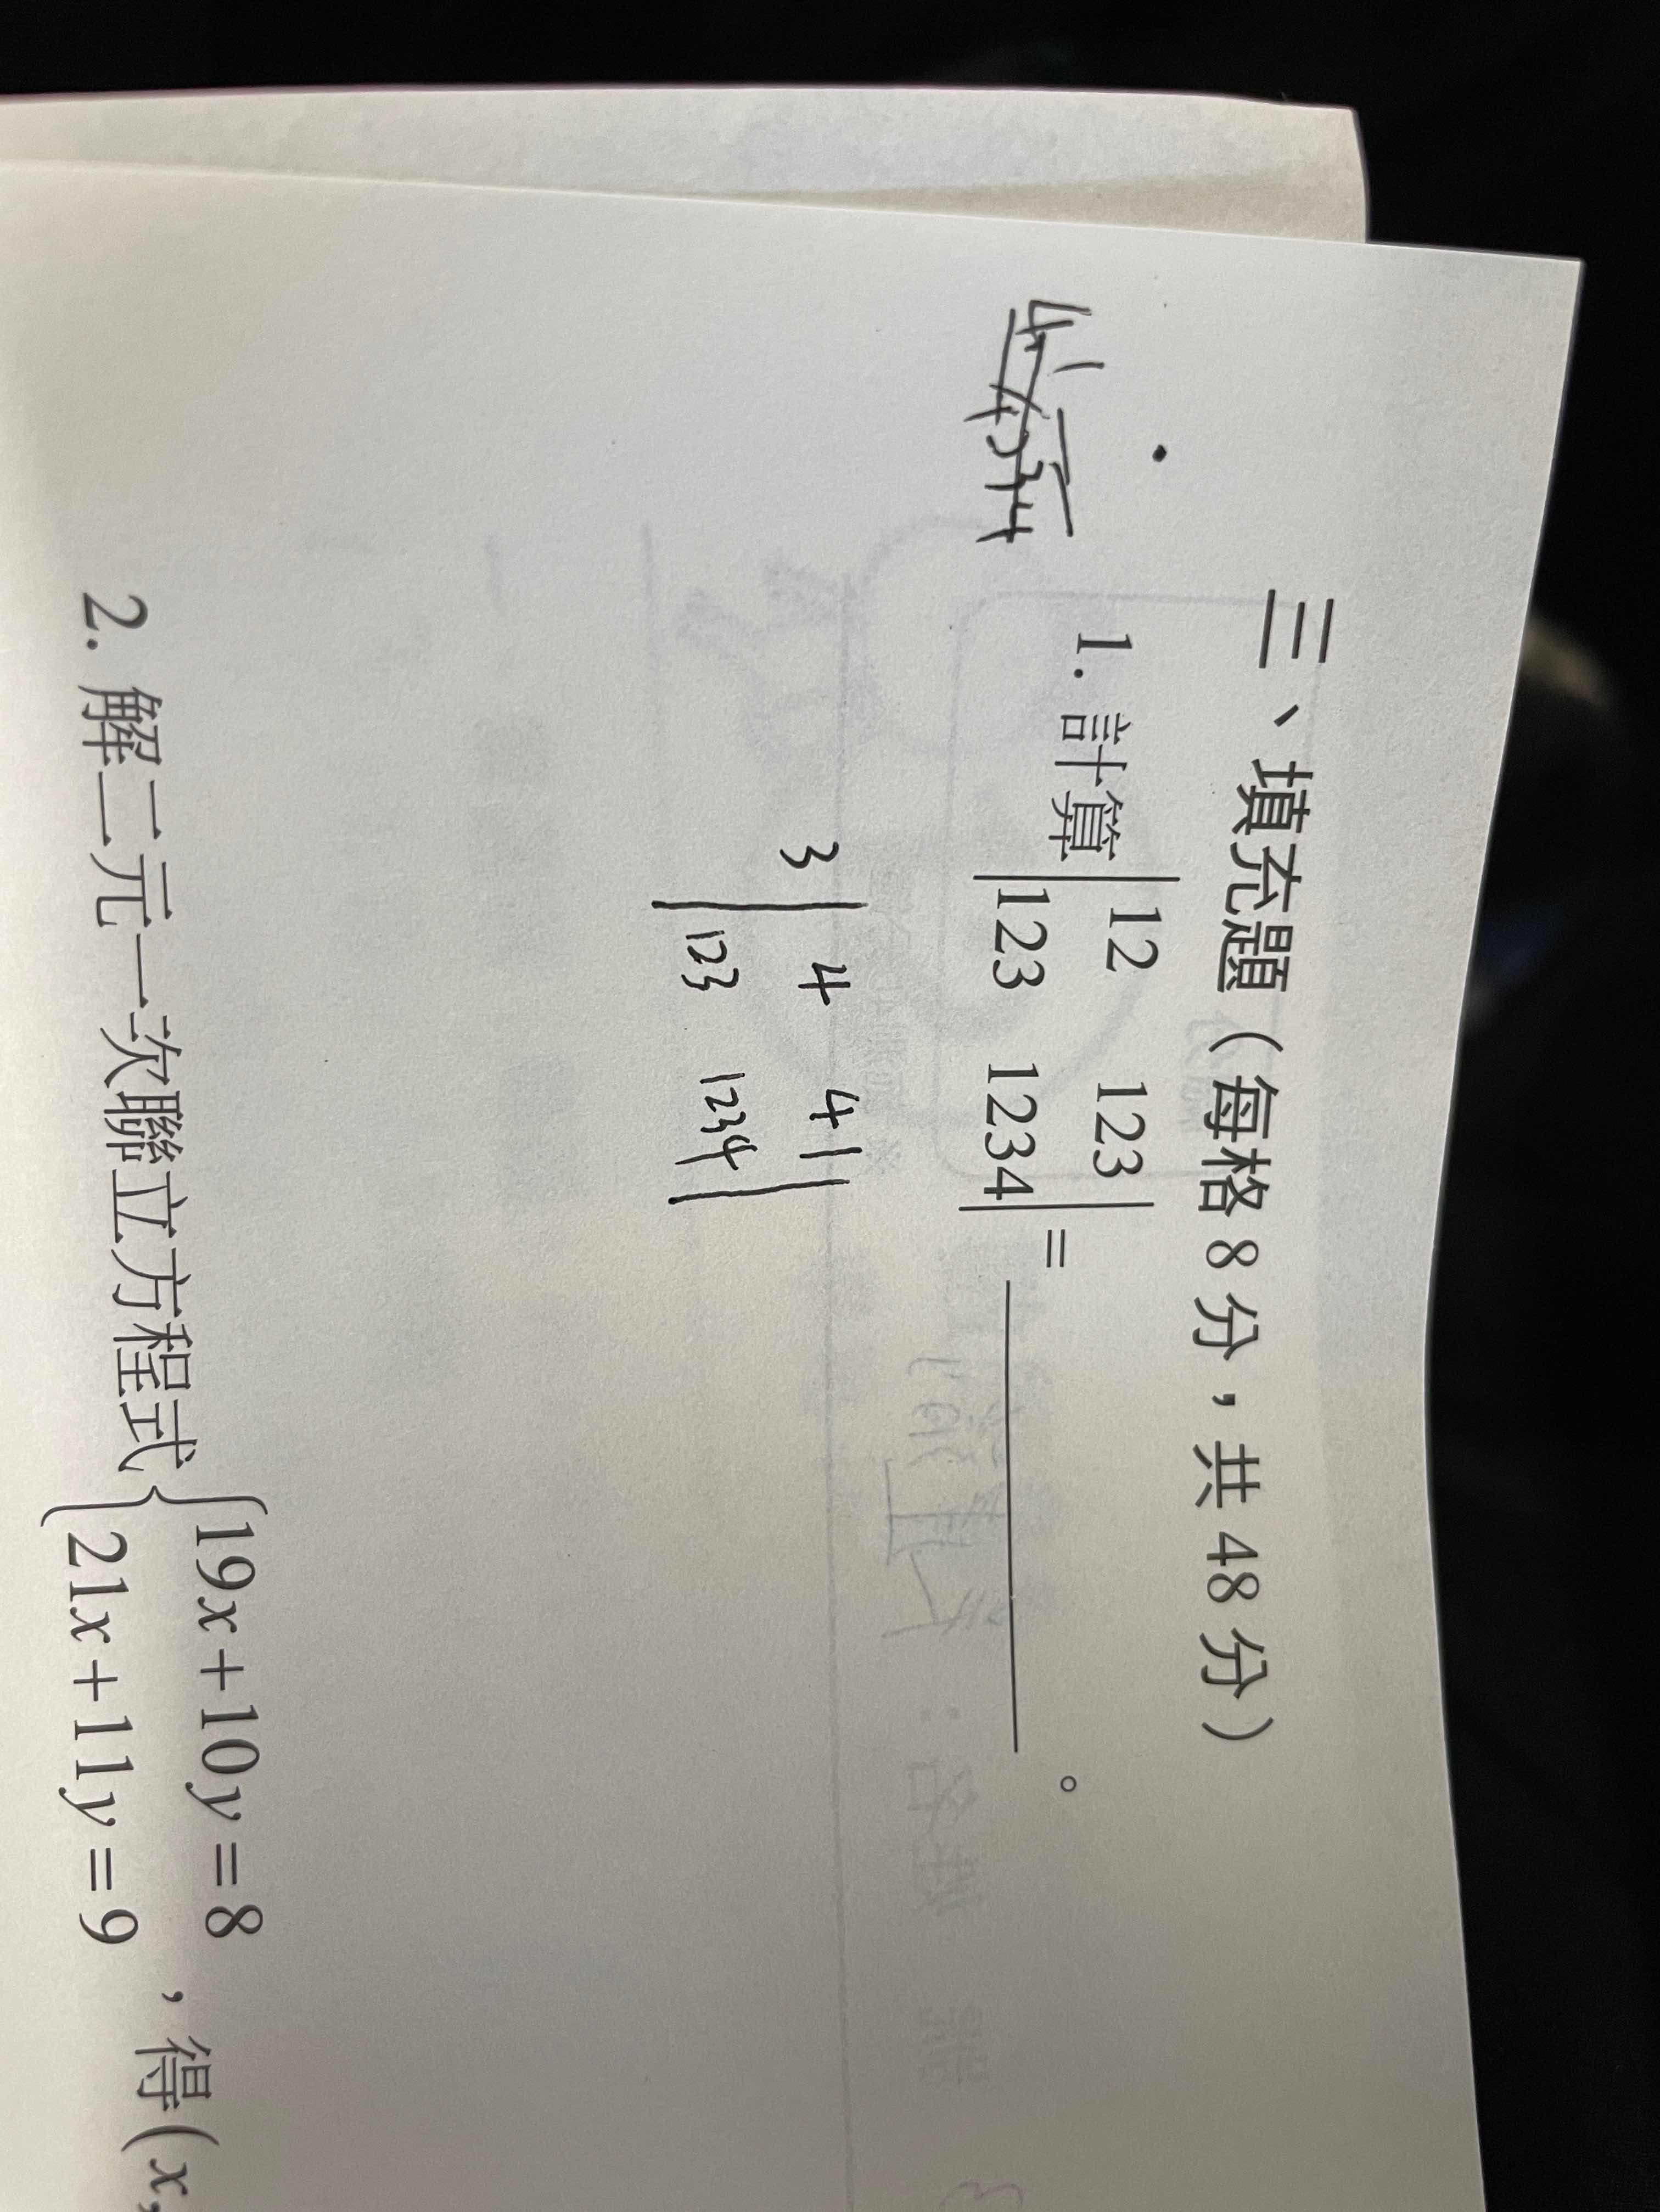 三、填充題（每格8分，共48分）
1. 計算 |12 123|
|123 1234| = ＿＿＿＿＿。
3 |4 41|
|123 1234|
2. 解二元一次聯立方程式 {19x+10y=8
21x+11y=9 ，得(x,